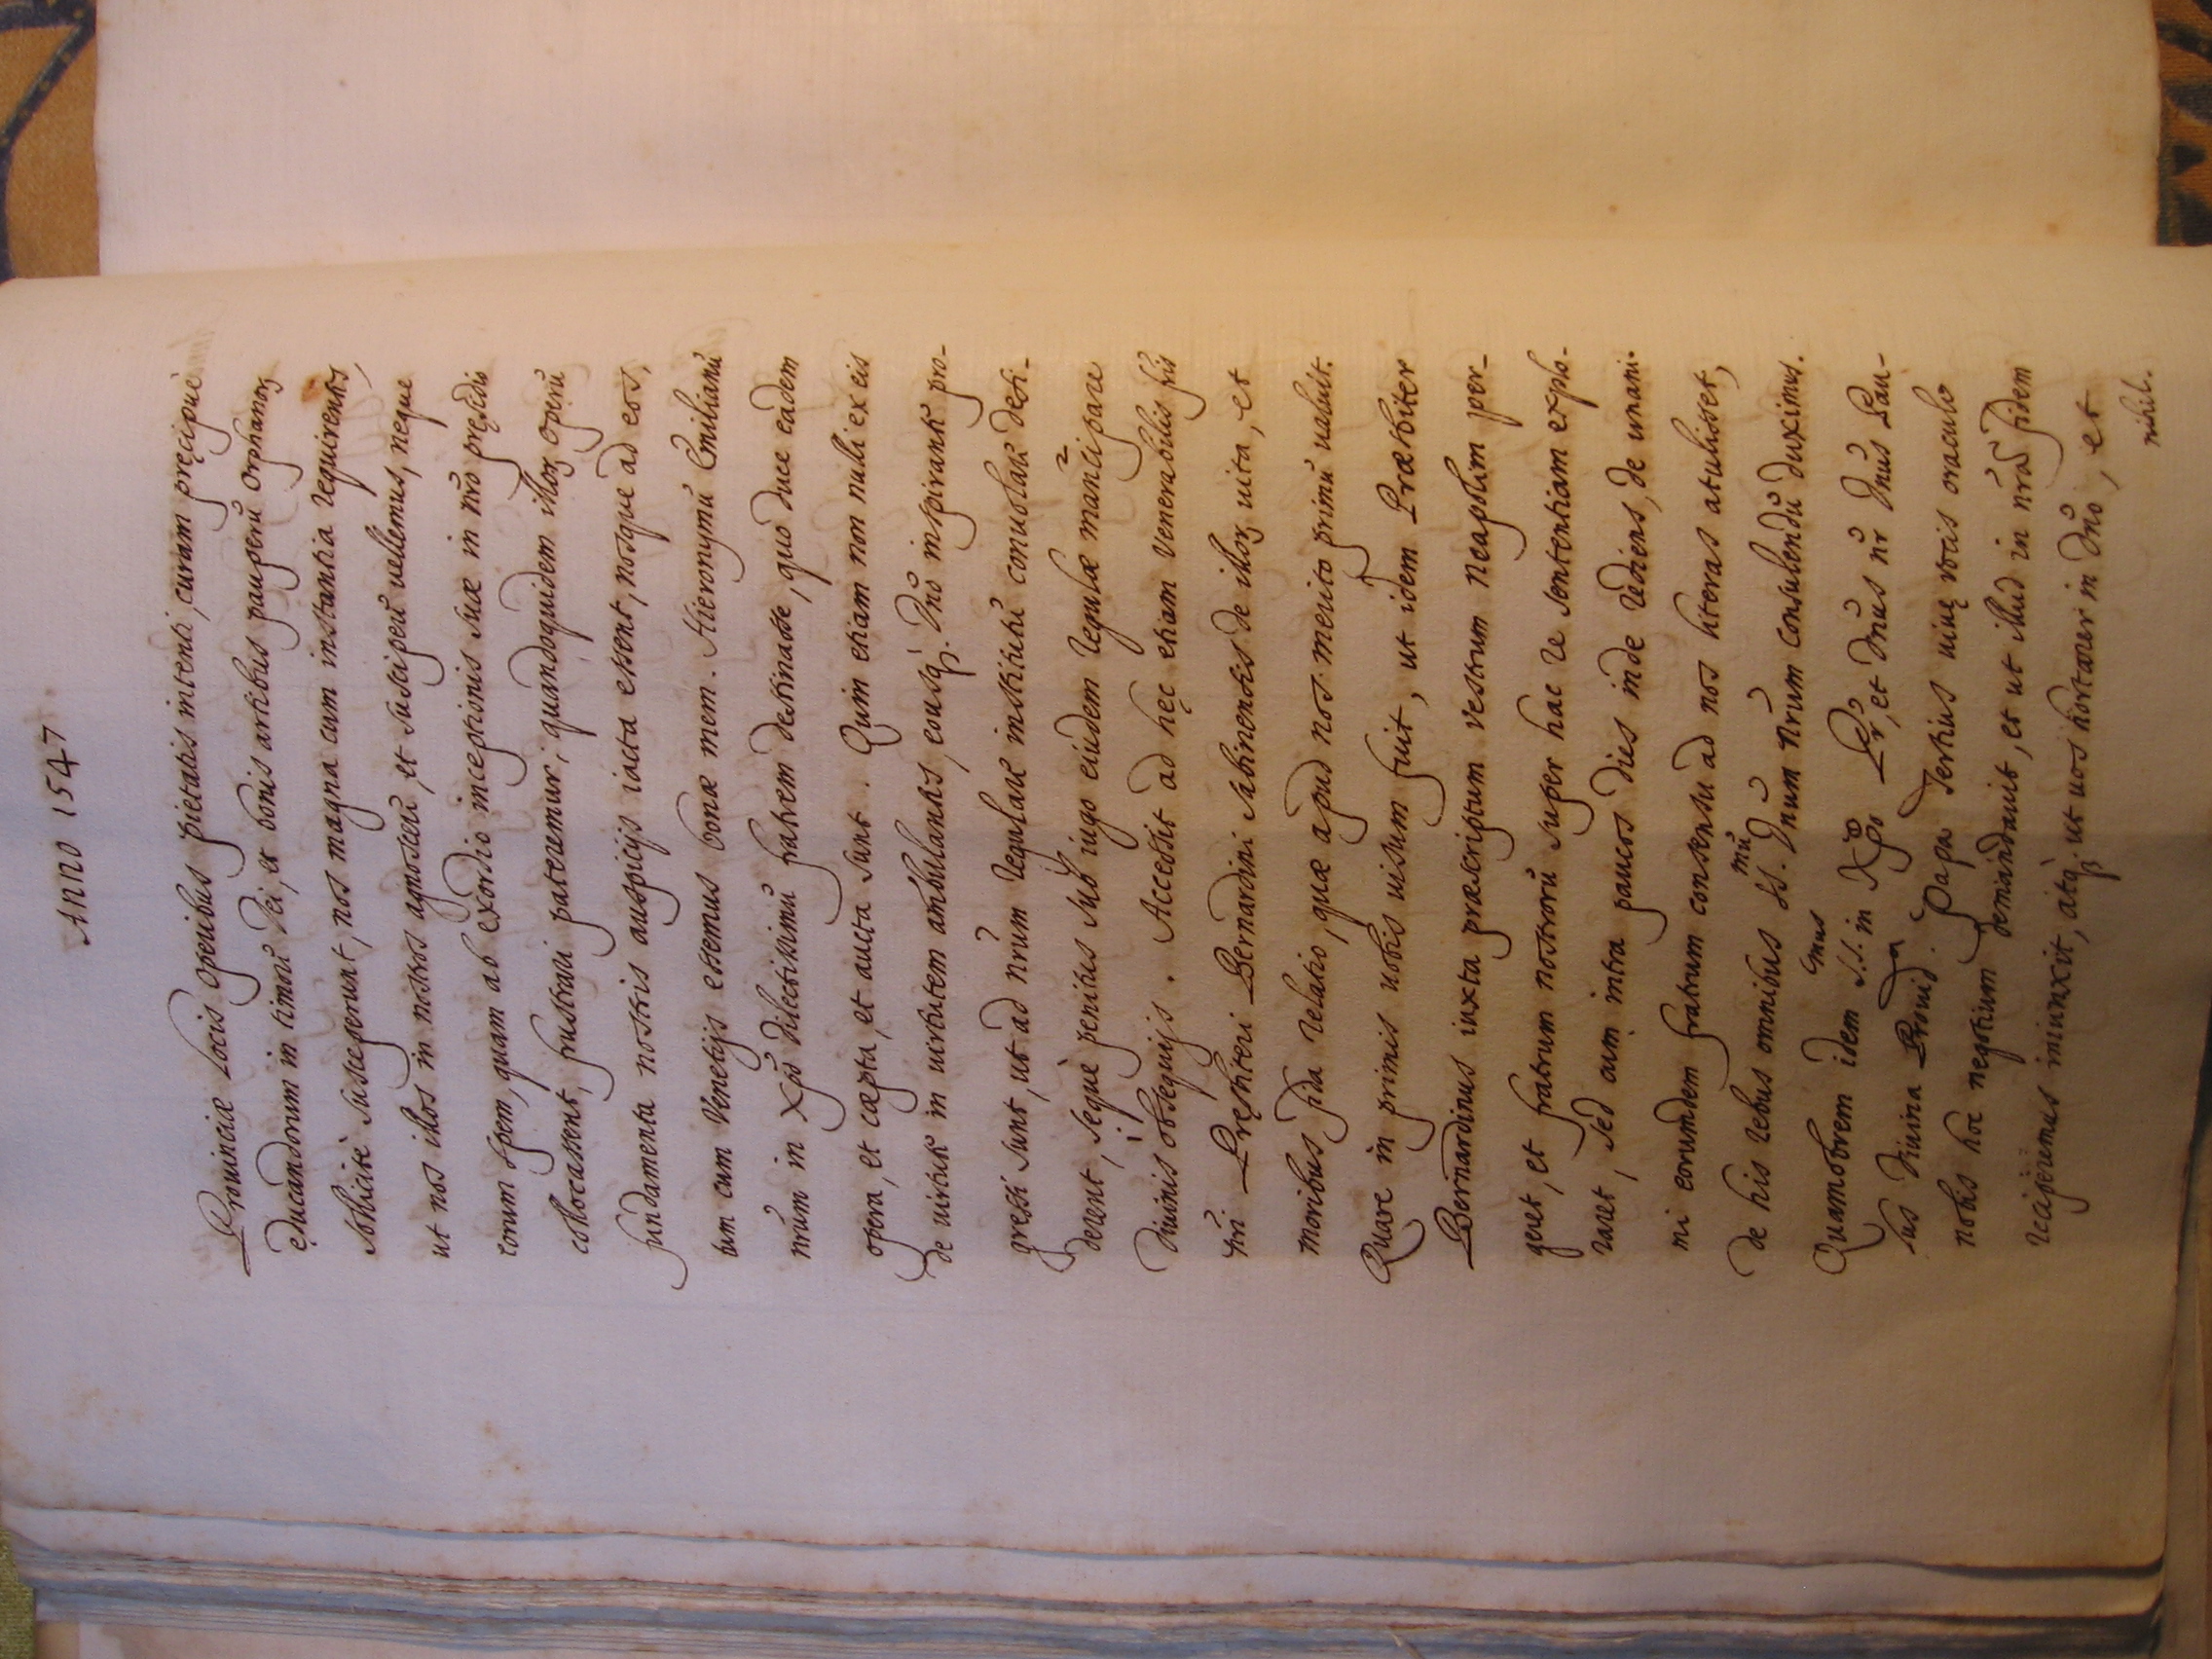 ANNO 1547
Prouinciæ locis operibus pietatis intenti, curam pręcipuè
educandorum in timu Dei, et bonis artibus pauperũ orphanoꝝ
sollicitè susceperunt, nos magna cum instantia requirentes,
ut nos illos in nostros agnoscere, et suscipere uellemus, neque
eorum spem, quam ab exordio inceptionis suæ in nr̃o pręsidio
collocassent, frustrari pateremur; quandoquidem illoꝝ operũ
fundamenta nostris auspicijs iacta essent, nosque ad eos,
tum cum Venetijs essemus bonæ mem. Hieronymũ Emilianũ
nr̃um in Xp̃o dilectissimũ fratrem destinasse, quo duce eadem
opera, et cæpta, et aucta sunt. Quin etiam non nulli ex eis
de uirtute in uirtutem ambulantes, eousq̃. Dño inspirante pro-
gressi sunt, ut ad nr̃um regulare institutũ conuolare desi-
derent, sequè penitus sub iugo eiusdem regulæ mancipare
diuinis obsequijs. Accessit ad hęc etiam Venerabilis fr̃is
nr̃i Pręsbiteri Bernardini Sabinensis de illoꝝ uita, et
moribus fida relatio, quæ apud nos merito primũ ualuit.
Quare in primis uobis uisum fuit, ut idem Præsbiter
Bernardinus iuxta præscriptum vestrum Neapolim per-
geret, et fratrum nostrorũ super hac re sententiam explo-
raret, sed cum intra paucos dies inde rediens, de unani-
mi eorumdem fratrum consensu ad nos literas atulisset,
de his rebus omnibus SS.mũ Dnum Nrum consulendũ duximus.
Quamobrem idem S.S.mus in Xp̃o Pr̃, et Dñus nr̃ Dñus Pau-
lus diuina Prouid.a Papa Tertius uiuę vocis oraculo
nobis hoc negotium demandauit, et ut illud in nr̃ã fidem
reciperemus iniunxit, atq̃. ut uos hortarer in Dño, et
nihil.